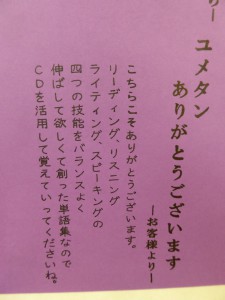 り―
ユメタン
ありがとうございます
―お客様より―
こちらこそありがとうございます。
リーディング、リスニング
ライティング、スピーキングの
四つの技能をバランスよく
伸ばして欲しくて創った単語集なので
CDを活用して覚えていってくださいね。